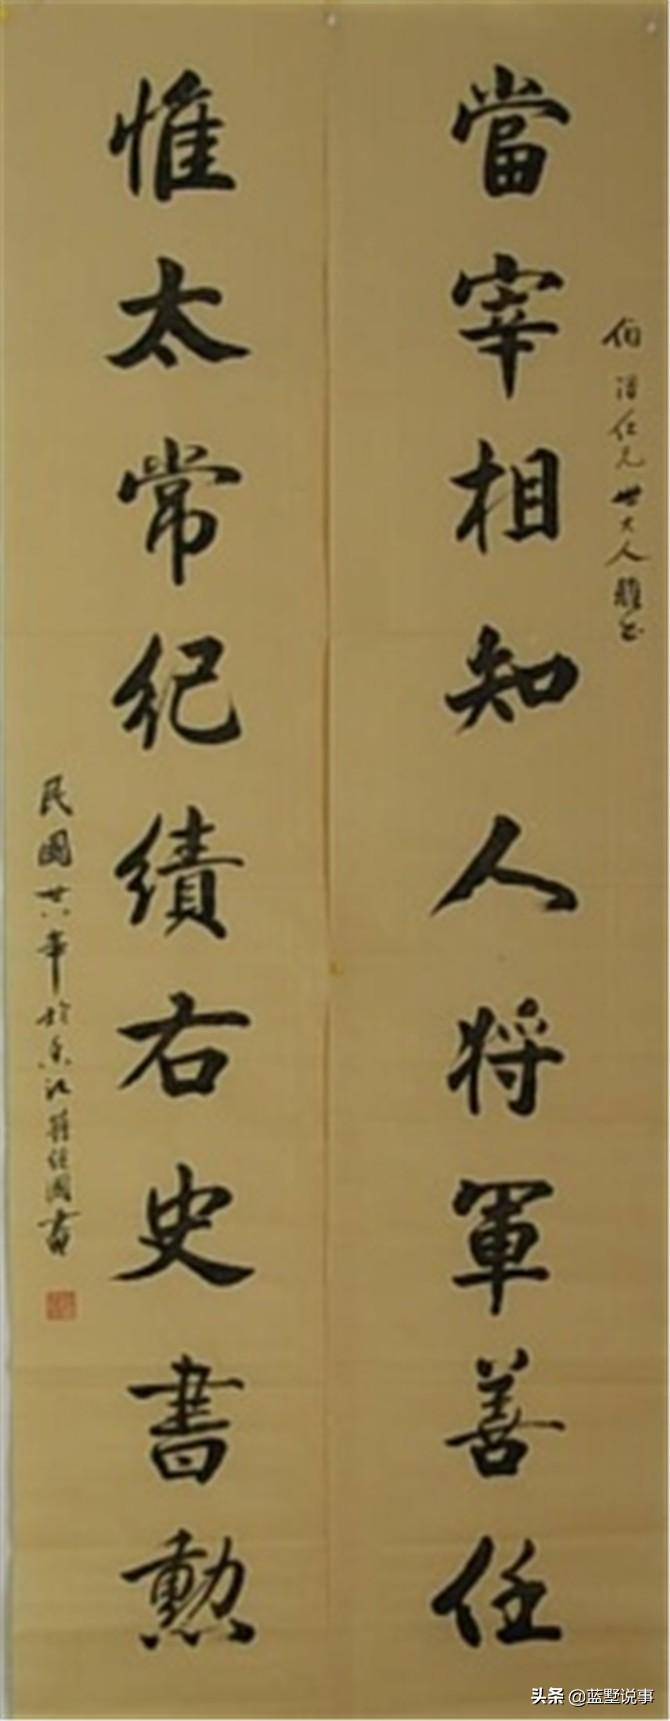 伯 仁兄世大人雅正
當宰相知人將軍善任
惟太常紀績右史書勳
民國廿八年於香江蔣經國書
头条 @蓝墅说事